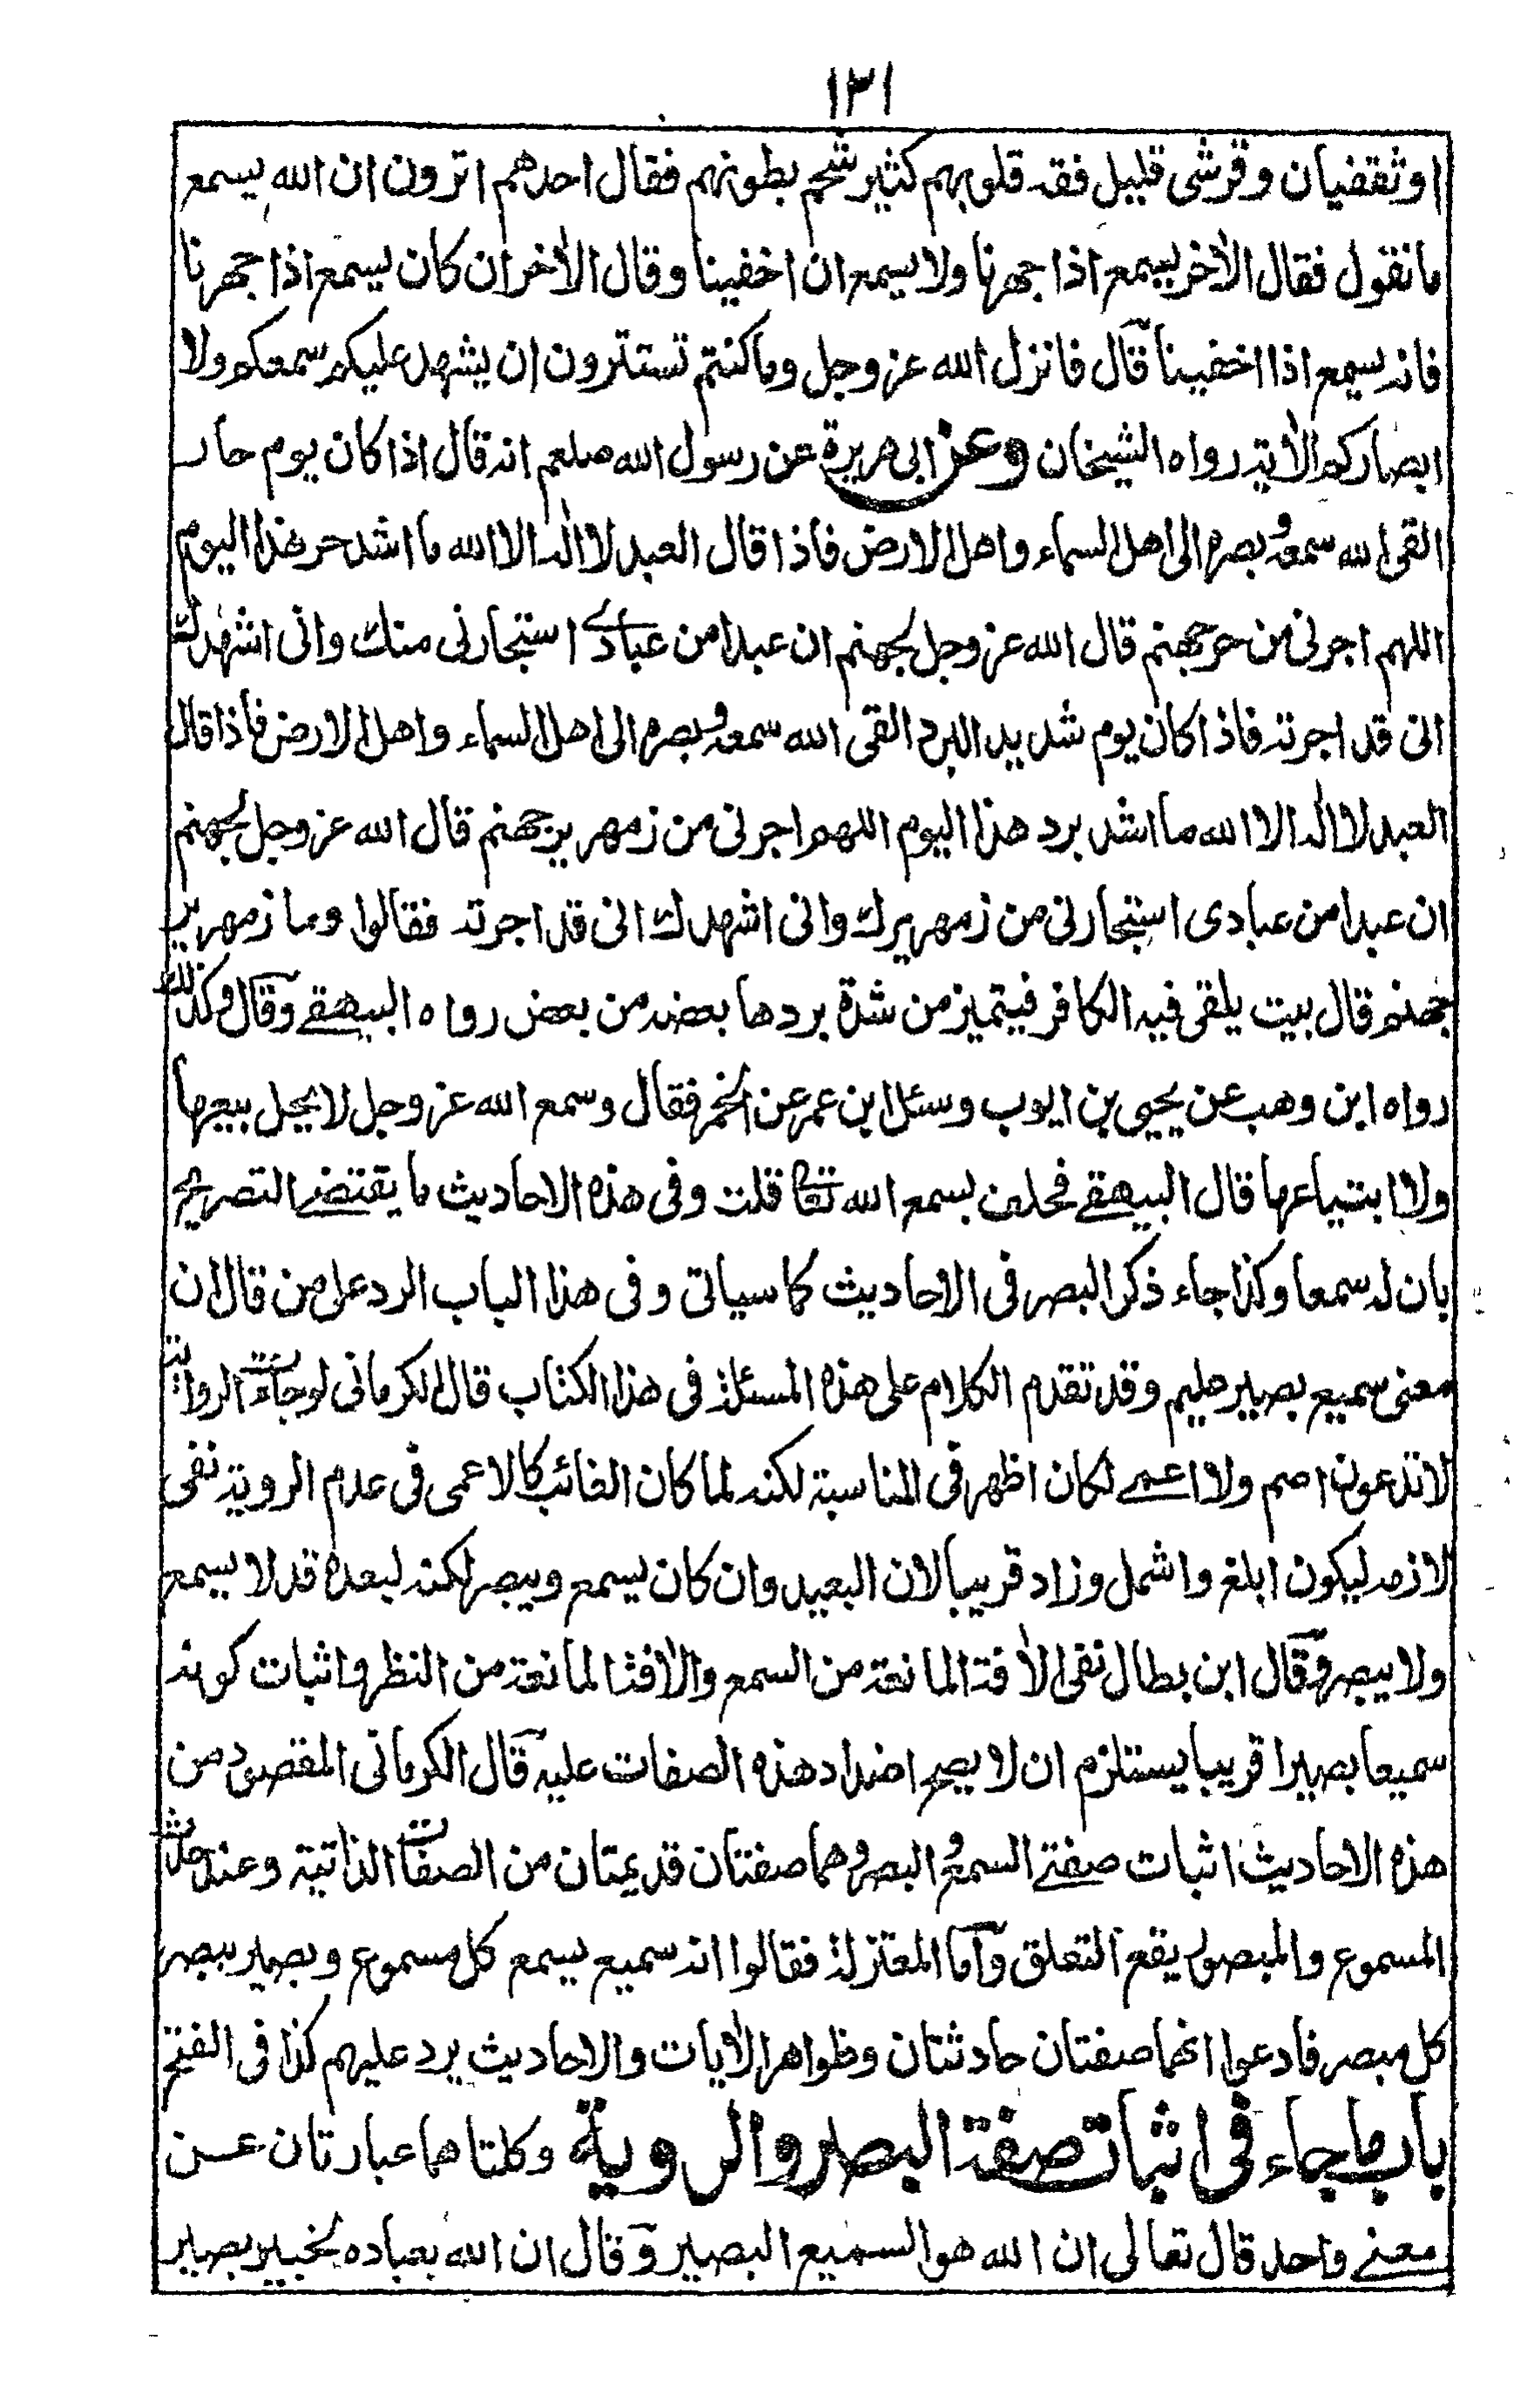 ١٣١
اوثقفيان وقرشى قليل فقه قلوبهم كثير شحم بطونهم فقال احدهم اترون ان الله يسمع
ما نقول فقال الآخر يسمع اذا جهرنا ولا يسمع ان اخفينا وقال الآخر ان كان يسمع اذا جهرنا
فانه يسمع اذا اخفينا قال فانزل الله عز وجل وما كنتم تستترون ان يشهد عليكم سمعكم ولا
ابصاركم الآية رواه الشيخان وعن ابى هريرة عن رسول الله صلعم انه قال اذا كان يوم حار
القى الله سمعه وبصره الى اهل السماء واهل الارض فاذا قال العبد لا اله الا الله ما اشد حر هذا اليوم
اللهم اجرنى من حر جهنم قال الله عز وجل لجهنم ان عبدا من عبادى استجارنى منك وانى اشهدك
انى قد اجرته فاذا كان يوم شديد البرد القى الله سمعه وبصره الى اهل السماء واهل الارض فاذا قال
العبد لا اله الا الله ما اشد برد هذا اليوم اللهم اجرنى من زمهرير جهنم قال الله عز وجل لجهنم
ان عبدا من عبادى استجارنى من زمهريرك وانى اشهدك انى قد اجرته فقالوا وما زمهرير
جهنم قال بيت يلقى فيه الكافر فيتميز من شدة بردها بعضه من بعض رواه البيهقے وقال وكذلك
رواه ابن وهب عن يحيى بن ايوب وسئل ابن عمر عن الخمر فقال وسمع الله عز وجل لا يحل بيعها
ولا ابتياعها قال البيهقے فحلف بسمع الله تعا قلت وفى هذه الاحاديث ما يقتضے التصريح
بان له سمعا وكذا جاء ذكر البصر فى الاحاديث كما سياتى وفى هذا الباب الرد على من قال ان
معنى سميع بصير عليم وقد تقدم الكلام على هذه المسئلة فى هذا الكتاب قال الكرمانى لو جاءت الرواية
لا تدعون اصم ولا اعمے لكان اظهر فى المناسبة لكنه لما كان الغائب كالاعمى فى عدم الروية نفى
لازمه ليكون ابلغ واشمل وزاد قريبا لان البعيد وان كان يسمع ويبصر لكنه لبعده قد لا يسمع
ولا يبصر وقال ابن بطال نفى الآفة المانعة من السمع والآفة المانعة من النظر واثبات كونه
سميعا بصيرا قريبا يستلزم ان لا يصح اضداد هذه الصفات عليه قال الكرمانى المقصود من
هذه الاحاديث اثبات صفتے السمع والبصر وهما صفتان قديمتان من الصفات الذاتية وعند حدوث
المسموع والمبصر يقع التعلق واما المعتزلة فقالوا انه سميع يسمع كل مسموع وبصير يبصر
كل مبصر فادعوا انهما صفتان حادثتان وظواهر الآيات والاحاديث يرد عليهم كذا فى الفتح
باب ما جاء فى اثبات صفة البصر والروية وكلتاهما عبارتان عن
معنے واحد قال تعالى ان الله هو السميع البصير وقال ان الله بعباده لخبير بصير